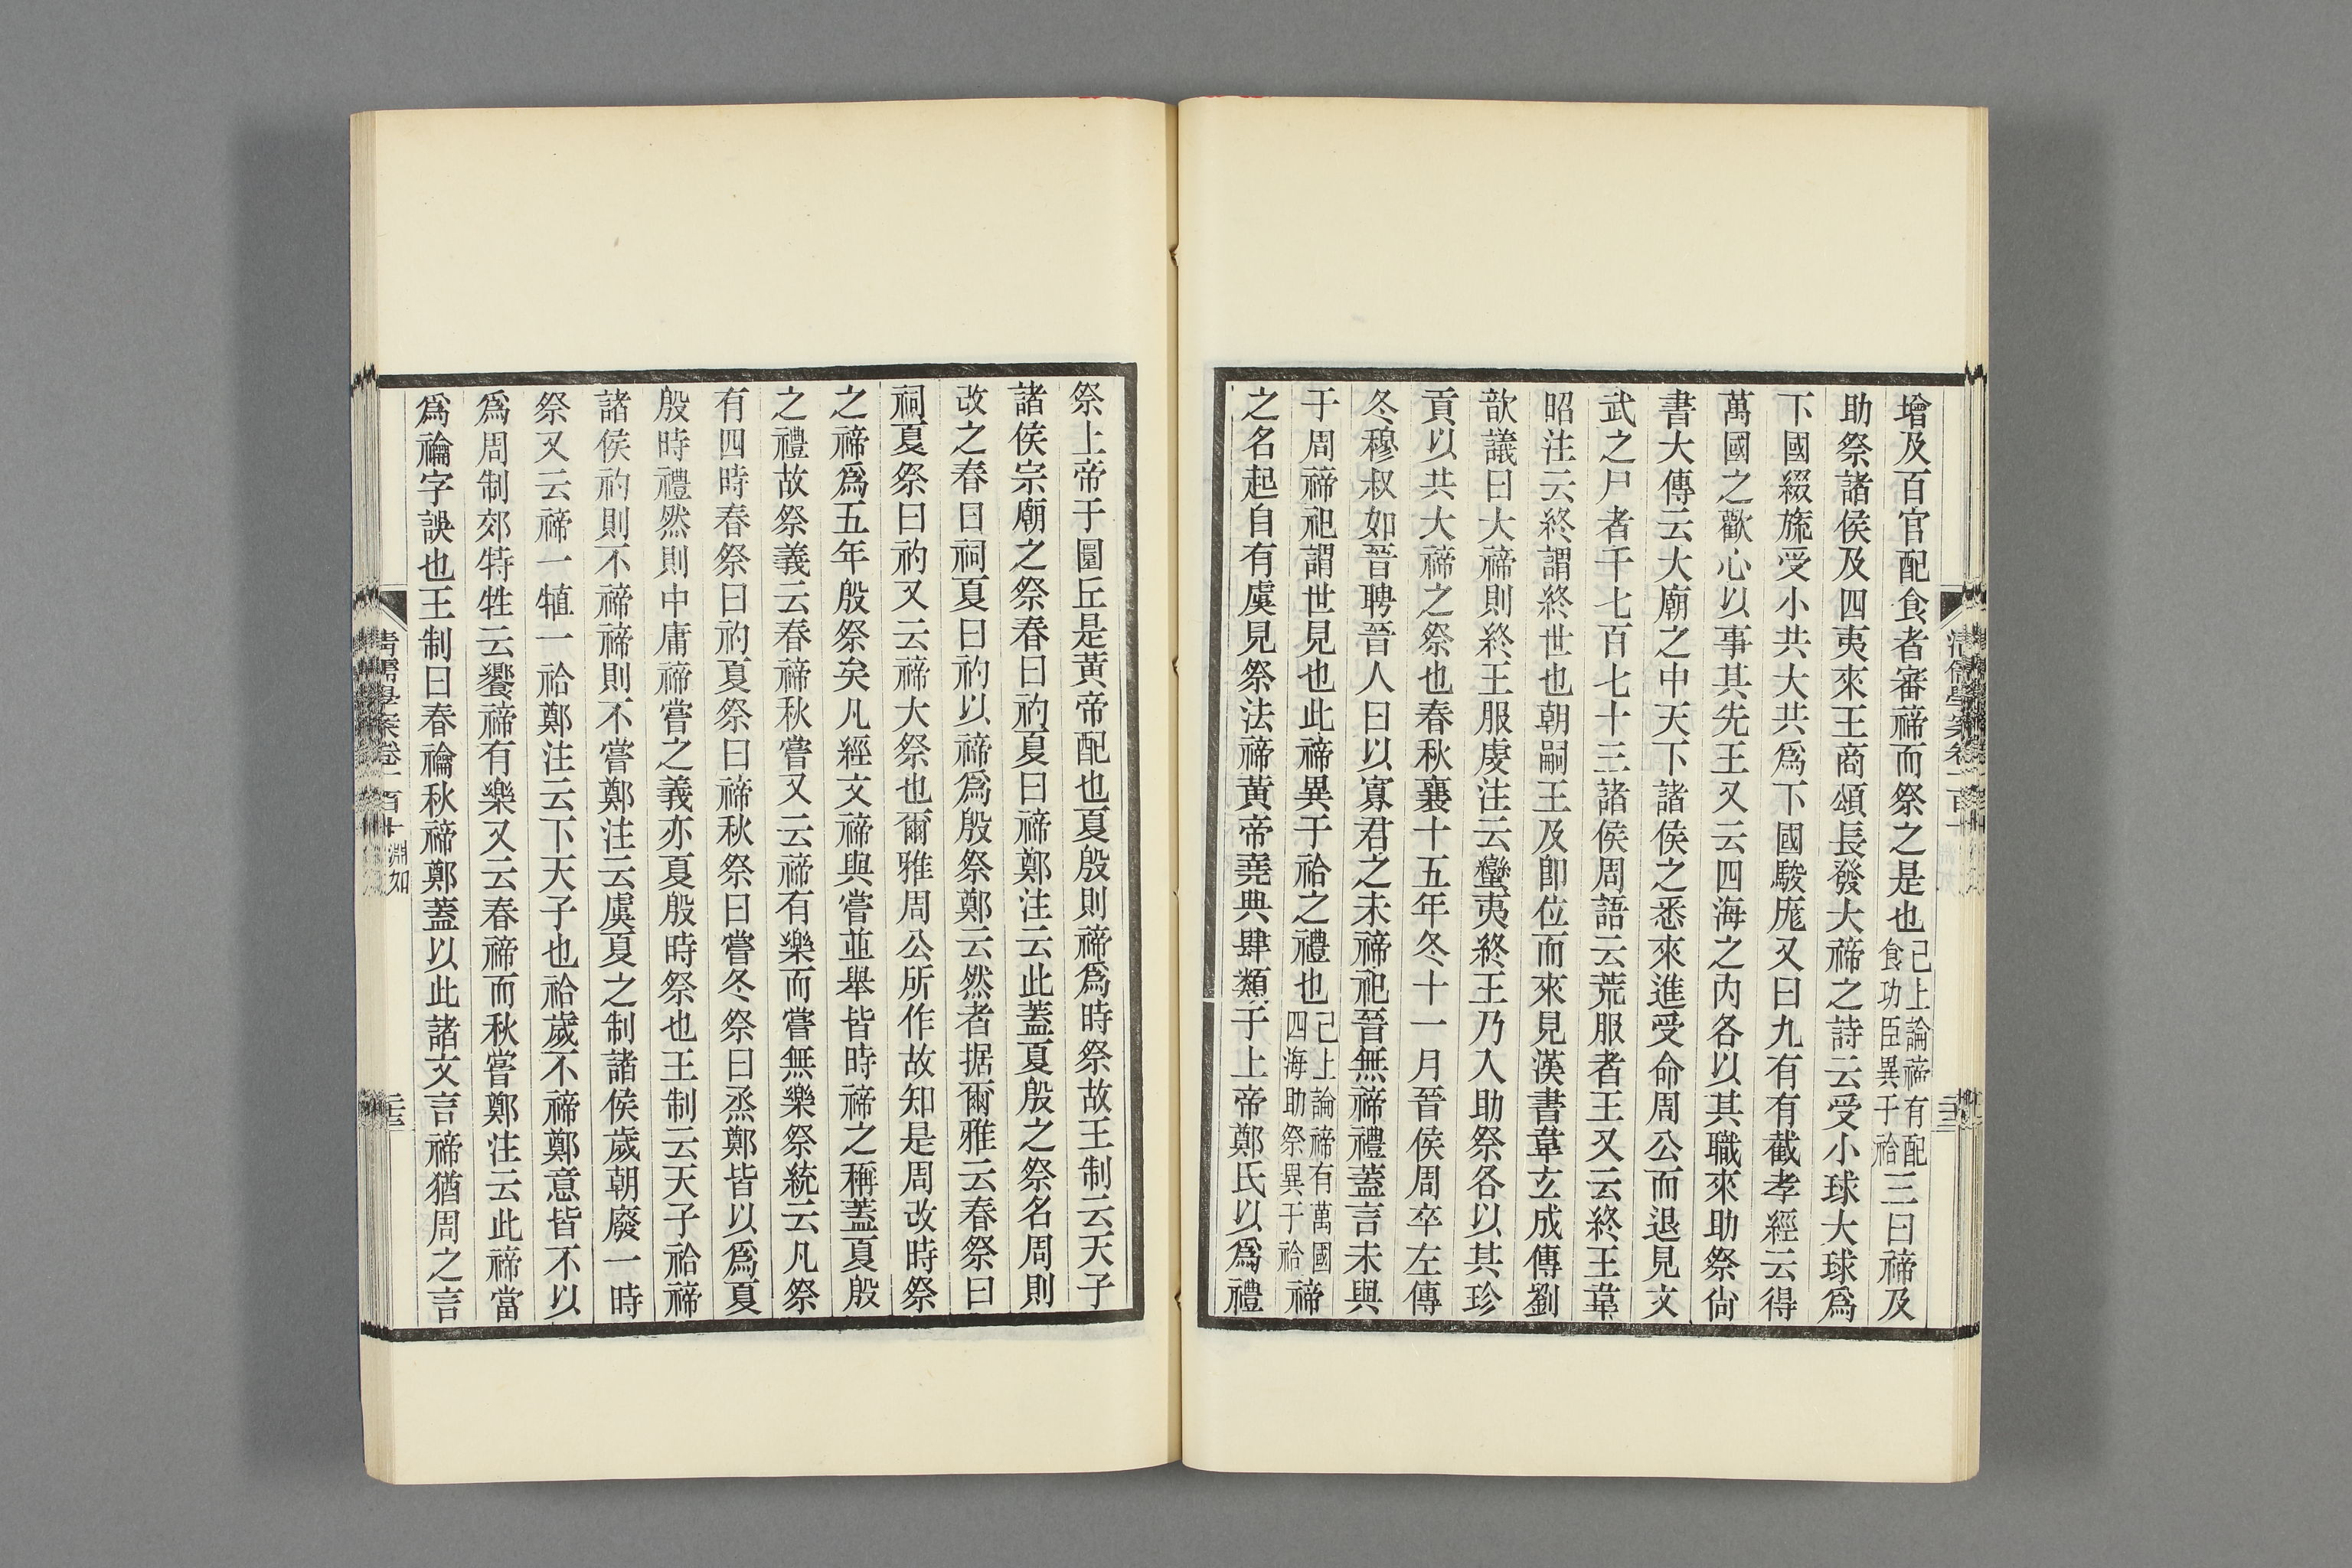 增及百官配食者審禘而祭之是也已上論禘有配食功臣異于祫三曰禘及
助祭諸侯及四夷來王商頌長發大禘之詩云受小球大球爲
下國綴旒受小共大共爲下國駿厖又曰九有有截孝經云得
萬國之歡心以事其先王又云四海之內各以其職來助祭尙
書大傳云大廟之中天下諸侯之悉來進受命周公而退見文
武之尸者千七百七十三諸侯周語云荒服者王又云終王韋
昭注云終謂終世也朝嗣王及卽位而來見漢書韋玄成傳劉
歆議曰大禘則終王服虔注云蠻夷終王乃入助祭各以其珍
貢以共大禘之祭也春秋襄十五年冬十一月晉侯周卒左傳
冬穆叔如晉聘晉人曰以寡君之未禘祀晉無禘禮蓋言未與
于周禘祀謂世見也此禘異于祫之禮也已上論禘有萬國四海助祭異于祫禘
之名起自有虞見祭法禘黃帝堯典肆類于上帝鄭氏以爲禮
祭上帝于圜丘是黃帝配也夏殷則禘爲時祭故王制云天子
諸侯宗廟之祭春曰礿夏曰禘鄭注云此蓋夏殷之祭名周則
改之春曰祠夏曰礿以禘爲殷祭鄭云然者据爾雅云春祭曰
祠夏祭曰礿又云禘大祭也爾雅周公所作故知是周改時祭
之禘爲五年殷祭矣凡經文禘與嘗並舉皆時禘之稱蓋夏殷
之禮故祭義云春禘秋嘗又云禘有樂而嘗無樂祭統云凡祭
有四時春祭曰礿夏祭曰禘秋祭曰嘗冬祭曰烝鄭皆以爲夏
殷時禮然則中庸禘嘗之義亦夏殷時祭也王制云天子祫禘
諸侯礿則不禘禘則不嘗鄭注云虞夏之制諸侯歲朝廢一時
祭又云禘一犆一祫鄭注云下天子也祫歲不禘鄭意皆不以
爲周制郊特牲云饗禘有樂又云春禘而秋嘗鄭注云此禘當
爲禴字誤也王制曰春禴秋禘鄭蓋以此諸文言禘猶周之言
清儒學案卷一百十 淵如